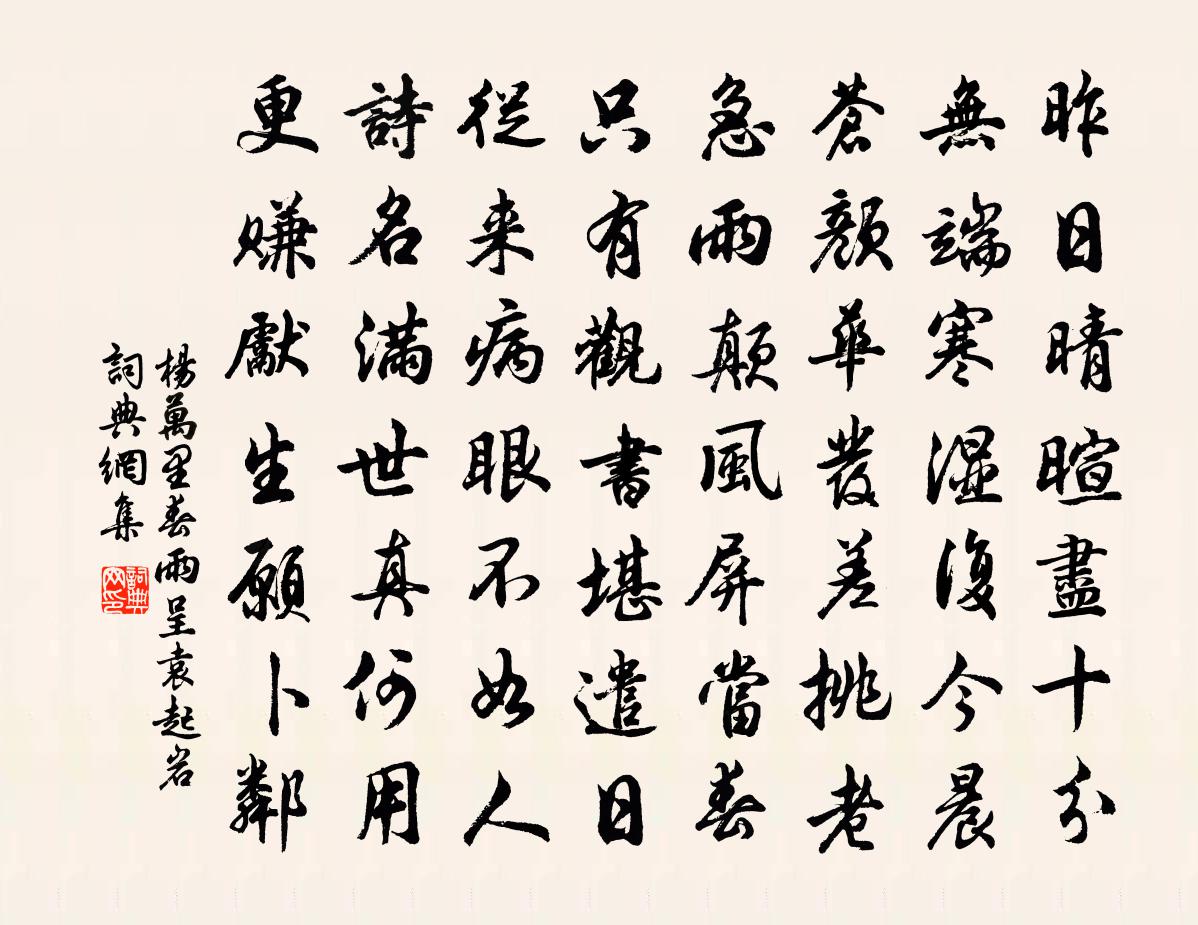 昨日晴暄盡十分
無端寒濕復今晨
蒼顏華發差排老
急雨顛風屏當春
只有觀書堪遣日
從来病眼不如人
詩名滿世真何用
更賺獻生願卜鄰
楊萬里春雨呈袁起岩
詞典網集
詞典網印